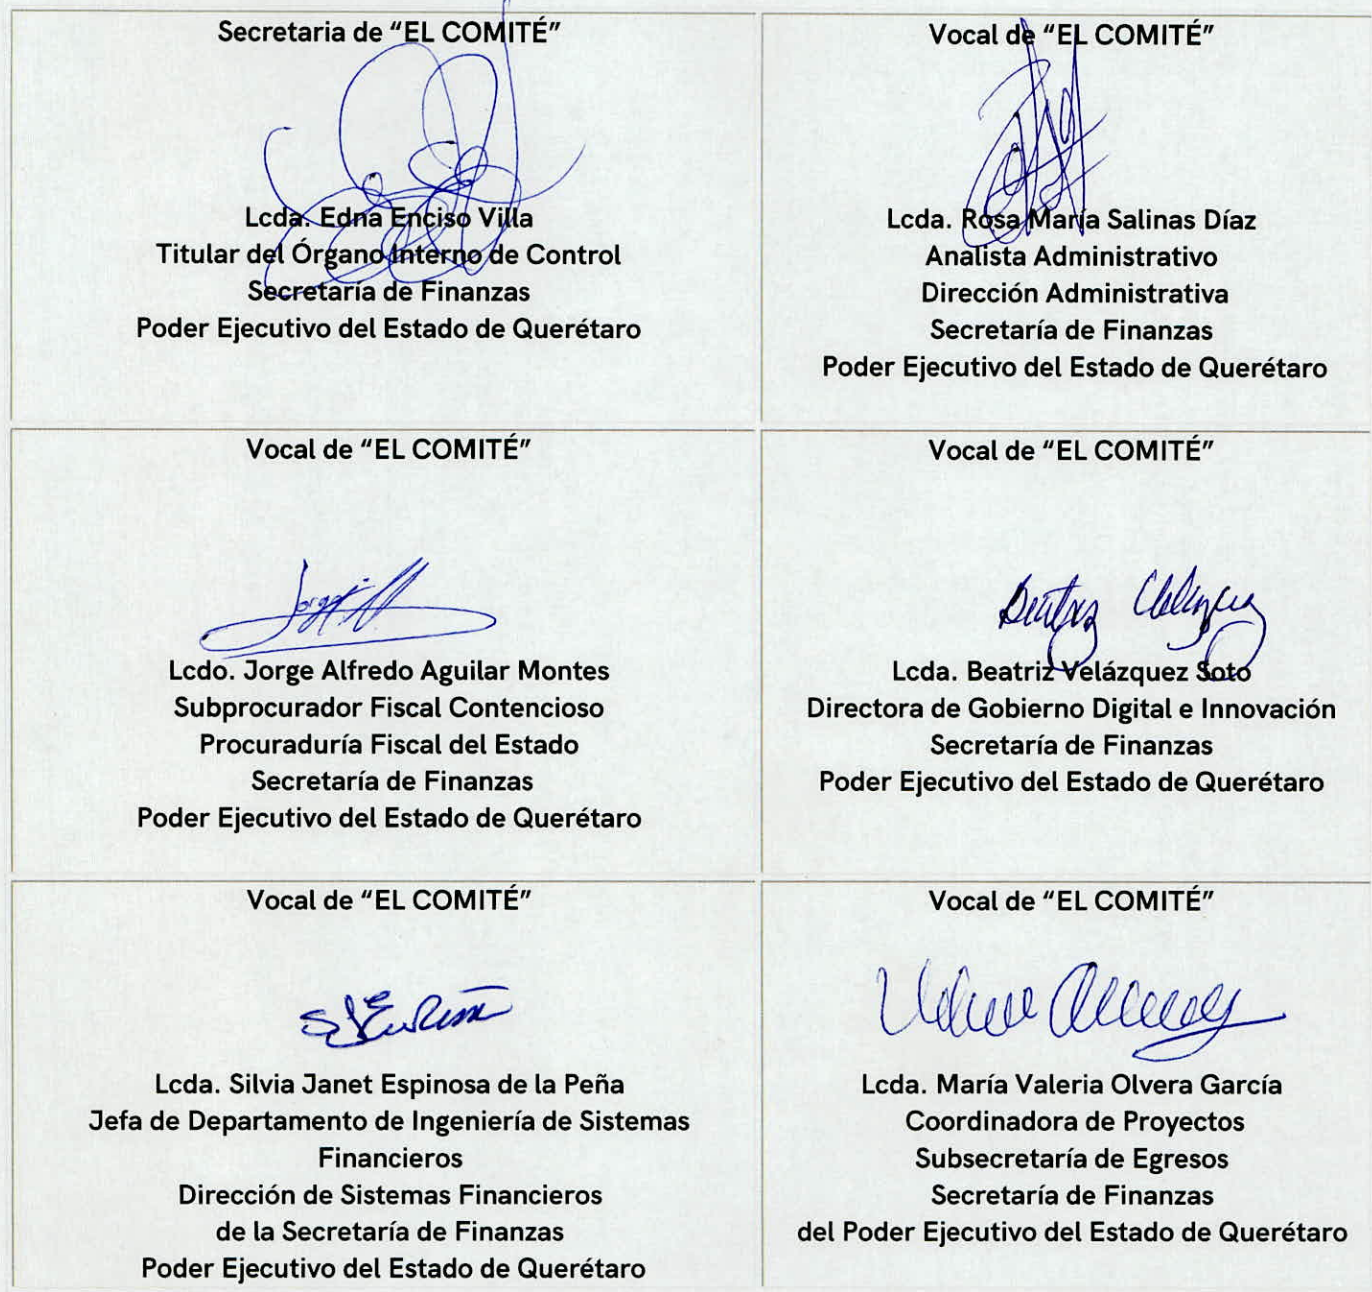 Secretaria de “EL COMITÉ”
Lcda. Edna Enciso Villa
Titular del Órgano Interno de Control
Secretaría de Finanzas
Poder Ejecutivo del Estado de Querétaro
Vocal de “EL COMITÉ”
Lcda. Rosa María Salinas Díaz
Analista Administrativo
Dirección Administrativa
Secretaría de Finanzas
Poder Ejecutivo del Estado de Querétaro
Vocal de “EL COMITÉ”
Jorge
Lcdo. Jorge Alfredo Aguilar Montes
Subprocurador Fiscal Contencioso
Procuraduría Fiscal del Estado
Secretaría de Finanzas
Poder Ejecutivo del Estado de Querétaro
Vocal de “EL COMITÉ”
Beatriz Velázquez
Lcda. Beatriz Velázquez Soto
Directora de Gobierno Digital e Innovación
Secretaría de Finanzas
Poder Ejecutivo del Estado de Querétaro
Vocal de “EL COMITÉ”
Lcda. Silvia Janet Espinosa de la Peña
Jefa de Departamento de Ingeniería de Sistemas
Financieros
Dirección de Sistemas Financieros
de la Secretaría de Finanzas
Poder Ejecutivo del Estado de Querétaro
Vocal de “EL COMITÉ”
Lcda. María Valeria Olvera García
Coordinadora de Proyectos
Subsecretaría de Egresos
Secretaría de Finanzas
del Poder Ejecutivo del Estado de Querétaro